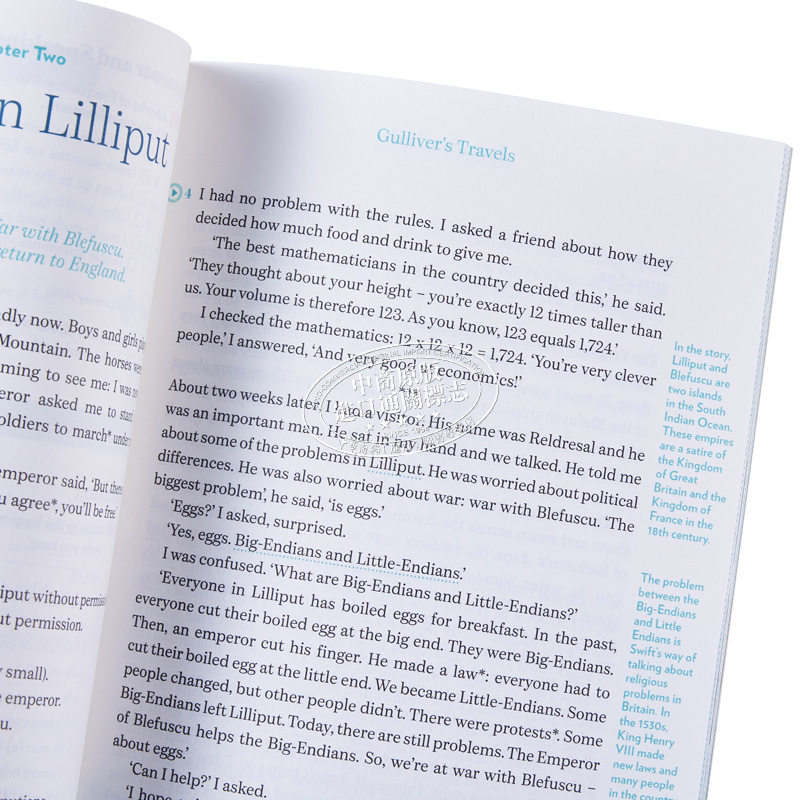 pter Two
n Lilliput
ar with Blefuscu.
return to England.
dly now. Boys and girls
Mountain. The horses
ming to see me: I was
eror asked me to stand
oldiers to march* under
emperor said, 'But there
u agree*, you'll be free.'
iput without permission
ut permission.
y small).
e emperor.
u.
Gulliver's Travels
4 I had no problem with the rules. I asked a friend about how they
decided how much food and drink to give me.
'The best mathematicians in the country decided this,' he said.
'They thought about your height – you're exactly 12 times taller than
us. Your volume is therefore 123. As you know, 123 equals 1,724.'
I checked the mathematics: 12 x 12 x 12 = 1,724. 'You're very clever
people,' I answered, 'And very good at economics!'
About two weeks later, I had a visitor. His name was Reldresal and he
was an important man. He sat in my hand and we talked. He told me
about some of the problems in Lilliput. He was worried about political
differences. He was also worried about war: war with Blefuscu. 'The
biggest problem', he said, 'is eggs.'
'Eggs?' I asked, surprised.
'Yes, eggs. Big-Endians and Little-Endians.'
I was confused. 'What are Big-Endians and Little-Endians?'
'Everyone in Lilliput has boiled eggs for breakfast. In the past,
everyone cut their boiled egg at the big end. They were Big-Endians.
Then, an emperor cut his finger. He made a law*: everyone had to
cut their boiled egg at the little end. We became Little-Endians. Some
people changed, but other people didn't. There were protests*. Some
Big-Endians left Lilliput. Today, there are still problems. The Emperor
of Blefuscu helps the Big-Endians. So, we're at war with Blefuscu –
about eggs.'
'Can I help?' I asked.
'I hope
In the story,
Lilliput and
Blefuscu are
two islands
in the South
Indian Ocean.
These empires
are a satire of
the Kingdom
of Great
Britain and the
Kingdom of
France in the
18th century.
The problem
between the
Big-Endians
and Little
Endians is
Swift's way of
talking about
religious
problems in
Britain. In
the 1530s,
King Henry
VIII made
new laws and
many people
in the country
中商原版
进口通关标志